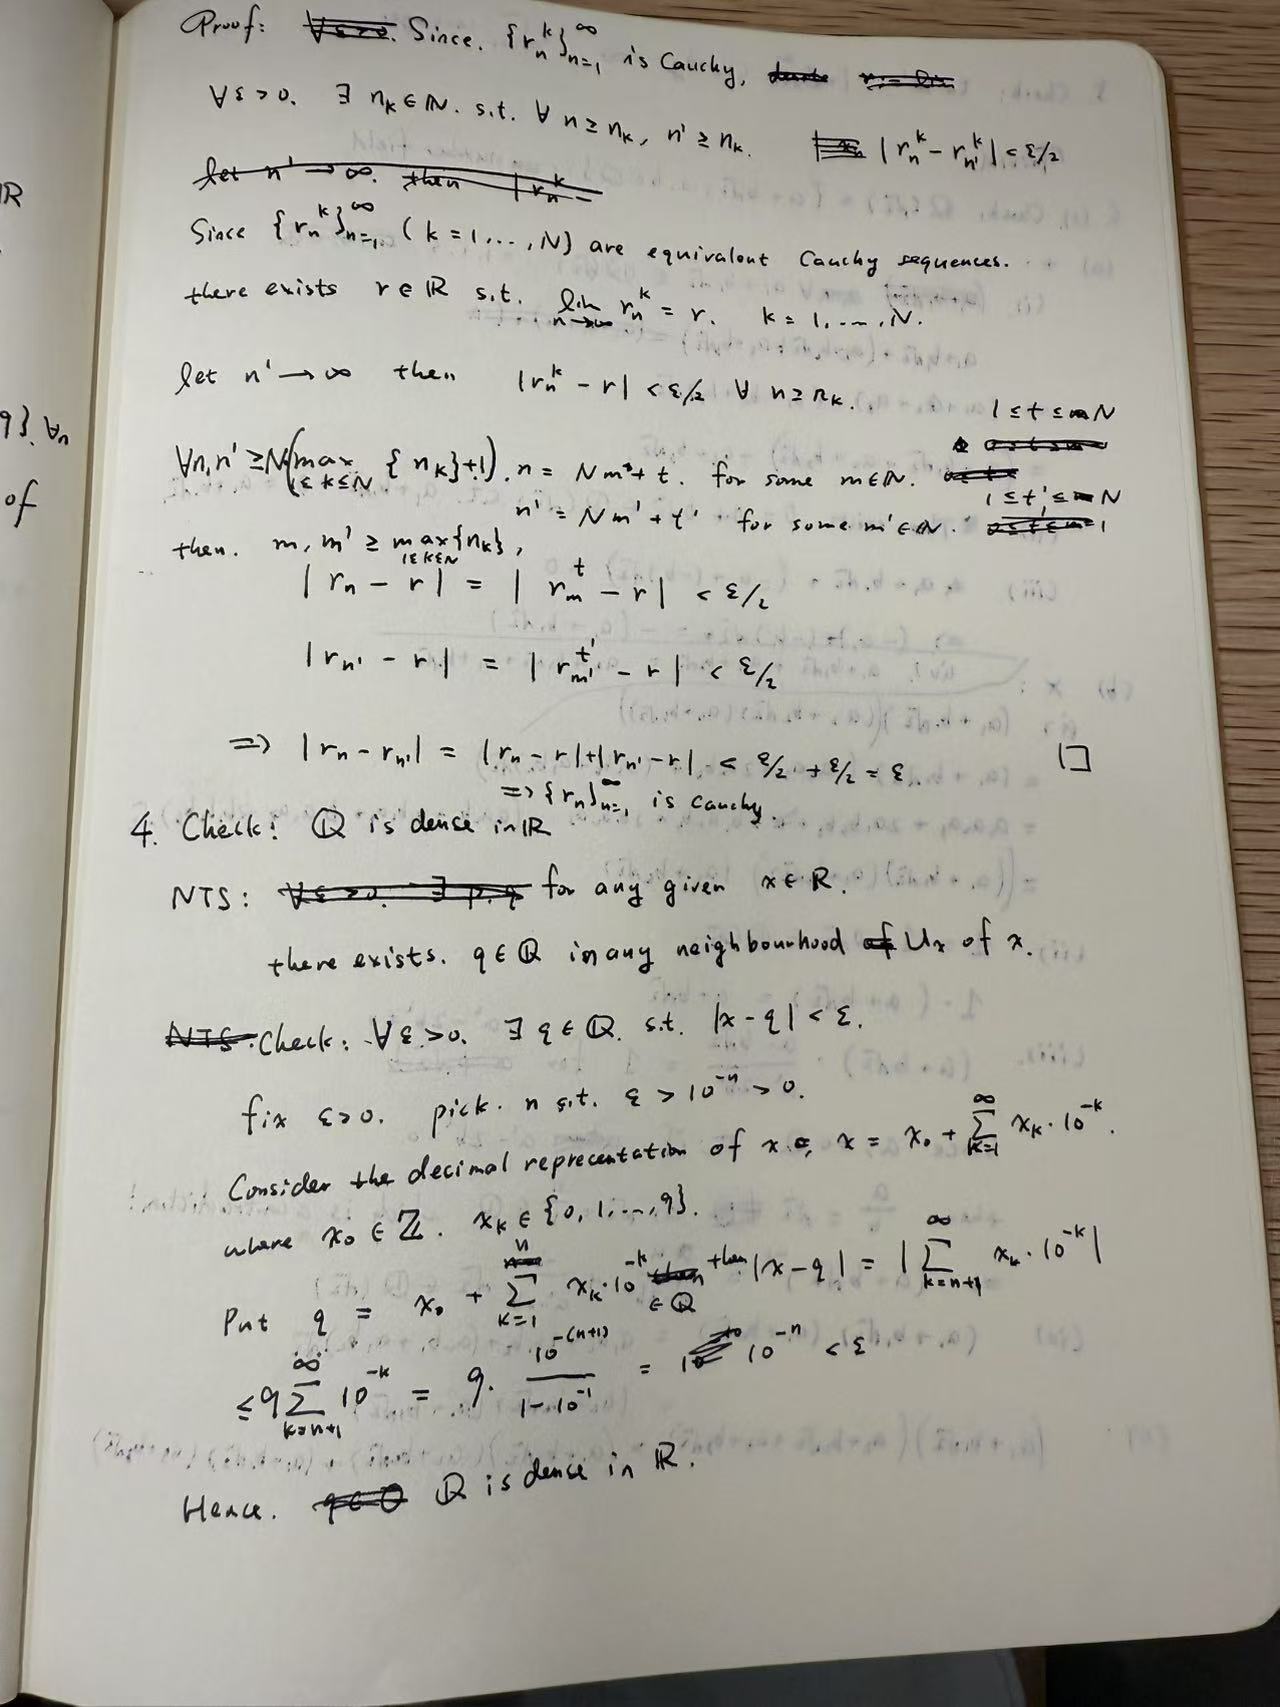 Proof: Since. {r_n^k}_{n=1}^∞ is Cauchy,
∀ε>0. ∃ n_k ∈ ℕ. s.t. ∀ n ≥ n_k, n' ≥ n_k. |r_n^k - r_{n'}^k| < ε/2
let n' → ∞. then |r_n^k -
Since {r_n^k}_{n=1}^∞ (k = 1, ..., N) are equivalent Cauchy sequences.
there exists r ∈ ℝ s.t. lim_{n→∞} r_n^k = r. k = 1, ..., N.
let n' → ∞ then |r_n^k - r| < ε/2 ∀ n ≥ n_k.
∀n, n' ≥ N(max_{1≤k≤N} {n_k}+1). n = Nm + t. for some m ∈ ℕ. 1 ≤ t ≤ N
n' = Nm' + t' for some m' ∈ ℕ. 1 ≤ t' ≤ N
then. m, m' ≥ max_{1≤k≤N}{n_k},
|r_n - r| = |r_m^t - r| < ε/2
|r_{n'} - r| = |r_{m'}^{t'} - r| < ε/2
=> |r_n - r_{n'}| = |r_n - r| + |r_{n'} - r| < ε/2 + ε/2 = ε. □
=> {r_n}_{n=1}^∞ is Cauchy.
4. Check: ℚ is dense in ℝ
NTS: for any given x ∈ ℝ.
there exists. q ∈ ℚ in any neighbourhood U_x of x.
Check: ∀ε>0. ∃ q ∈ ℚ. s.t. |x - q| < ε.
fix ε>0. pick n s.t. ε > 10^{-n} > 0.
Consider the decimal representation of x. x = x_0 + ∑_{k=1}^∞ x_k · 10^{-k}.
where x_0 ∈ ℤ. x_k ∈ {0, 1, ..., 9}.
Put q = x_0 + ∑_{k=1}^n x_k · 10^{-k} ∈ ℚ then |x - q| = |∑_{k=n+1}^∞ x_k · 10^{-k}|
≤ 9 ∑_{k=n+1}^∞ 10^{-k} = 9 · 10^{-(n+1)} / (1 - 10^{-1}) = 10^{-n} < ε
Hence. ℚ is dense in ℝ.
ℝ
9}. ∀n
of